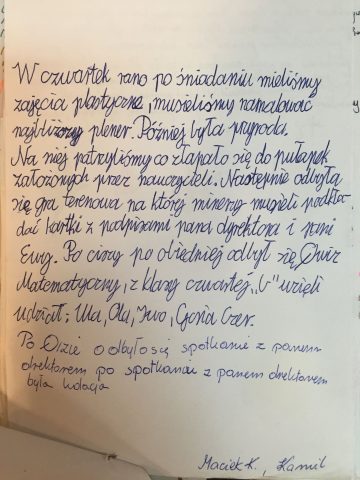 W czwartek rano po śniadaniu mieliśmy
zajęcia plastyczne, musieliśmy namalować
najbliższy plener. Później była przyroda.
Na niej patrzyliśmy co złapało się do pułapek
założonych przez nauczycieli. Następnie odbyła
się gra terenowa na której minerzy musieli podkła-
dać kartki z podpisami pana dyrektora i pani
Ewy. Po ciszy po obiedniej odbył się Quiz
Matematyczny, z klasy czwartej "b" wzięli
udział; Ula, Ola, Iwo, Gosia Czer.
Po Qizie odbyło się spotkanie z panem
direktorem po spotkaniu z panem direktorem
była kolacja
Maciek K., Kamil